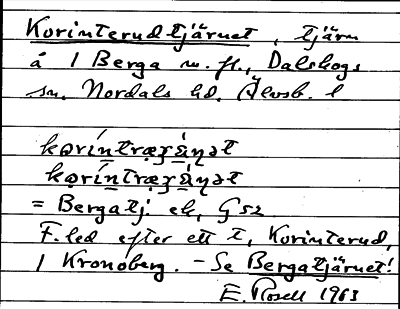 Korinterudtjärnet, tjärn
å 1 Berga m. fl., Dalskogs
sn, Nordals hd, Älvsb. l
koríntræɽɟ̀ä́ŋət
koríntræɽɟ̀ä́ŋət
= Bergatj. ek, G52
F. led efter ett t, Korinterud,
1 Kronoberg. - Se Bergatjärnet!
E. Rosell 1963